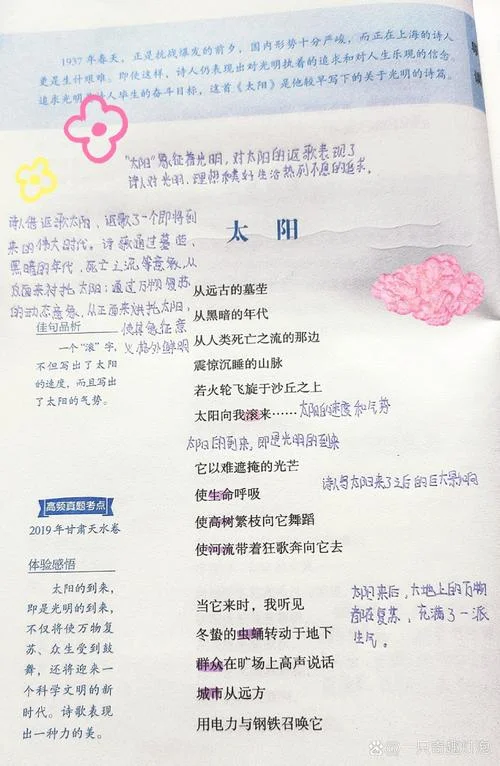 1937年春天，正是抗战爆发的前夕，国内形势十分严峻，而正在上海的诗人
更是生计艰难。即使这样，诗人仍表现出对光明执着的追求和对人生乐观的信念。
追求光明是诗人毕生的奋斗目标，这首《太阳》是他较早写下的关于光明的诗篇。
"太阳"象征着光明，对太阳的讴歌表现了
诗人对光明、理想和美好生活热烈不息的追求。
诗人借讴歌太阳，讴歌了一个即将到
来的伟大时代。诗歌通过墓茔，
黑暗的年代，死亡之流等意象，从
反面来衬托太阳；通过万物复苏
的动态意象，从正面来衬托太阳，
使其象征意
义格外鲜明
太阳
佳句品析
一个"滚"字，
不但写出了太阳
的速度，而且写出
了太阳的气势。
从远古的墓茔
从黑暗的年代
从人类死亡之流的那边
震惊沉睡的山脉
若火轮飞旋于沙丘之上
太阳向我滚来……太阳的速度和气势
太阳的到来，即是光明的到来
它以难遮掩的光芒
使生命呼吸
使高树繁枝向它舞蹈
使河流带着狂歌奔向它去
诗人写太阳来了之后的巨大影响
高频真题考点
2019年甘肃天水卷
体验感悟
太阳的到来，
即是光明的到来，
不仅将使万物复
苏、众生受到鼓
舞，还将迎来一
个科学文明的新
时代。诗歌表现
出一种力的美。
当它来时，我听见
冬蛰的虫蛹转动于地下
群众在旷场上高声说话
城市从远方
用电力与钢铁召唤它
太阳来后，大地上的万物
都在复苏，充满了一派
生气。
一只奇趣灯泡